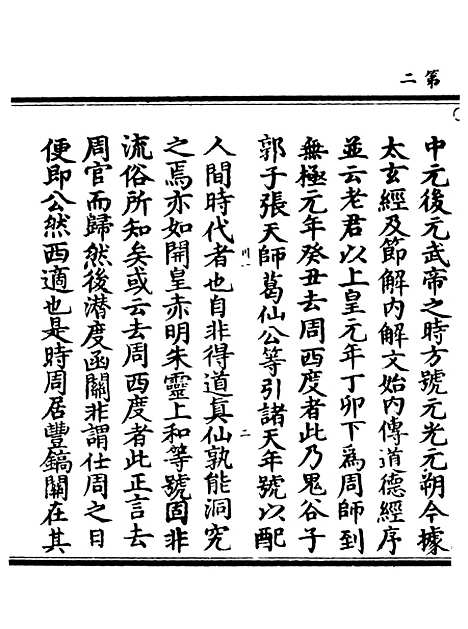 第二
中元後元武帝之時方號元光元朔今據
太玄經及節解內解文始內傳道德經序
並云老君以上皇元年丁卯下爲周師到
無極元年癸丑去周西度者此乃鬼谷子
郭子張天師葛仙公等引諸天年號以配
川一
二
人間時代者也自非得道眞仙孰能洞究
之焉亦如開皇赤明朱靈上和等號固非
流俗所知矣或云去周西度者此正言去
周官而歸然後潜度函關非謂仕周之日
便即公然西適也是時周居豐鎬關在其